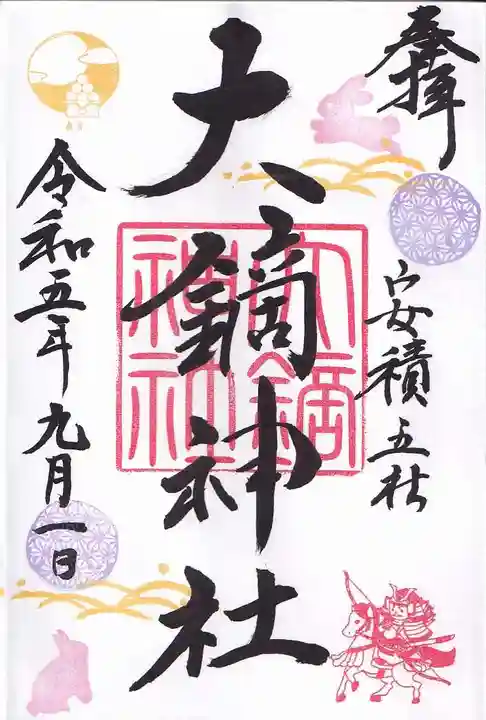 奉拝
安積五社
大鏑神社
大鏑
神社
令和五年九月一日